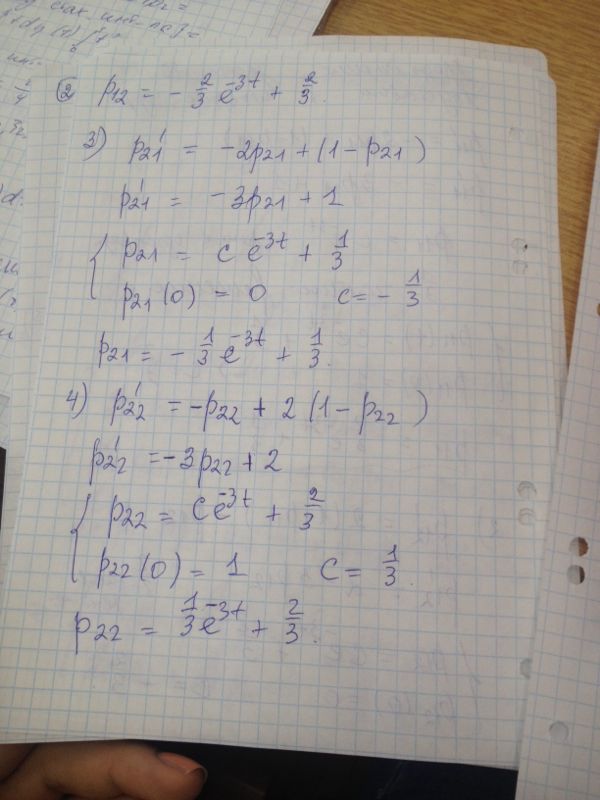 ② p12 = - 2/3 e^-3t + 2/3.
3) p21' = -2p21 + (1 - p21)
p21' = -3p21 + 1
{ p21 = c e^-3t + 1/3
p21 (0) = 0 c = - 1/3
p21 = - 1/3 e^-3t + 1/3.
4) p22' = -p22 + 2 (1 - p22)
p22' = -3p22 + 2
{ p22 = Ce^-3t + 2/3
p22 (0) = 1 C = 1/3.
p22 = 1/3 e^-3t + 2/3.